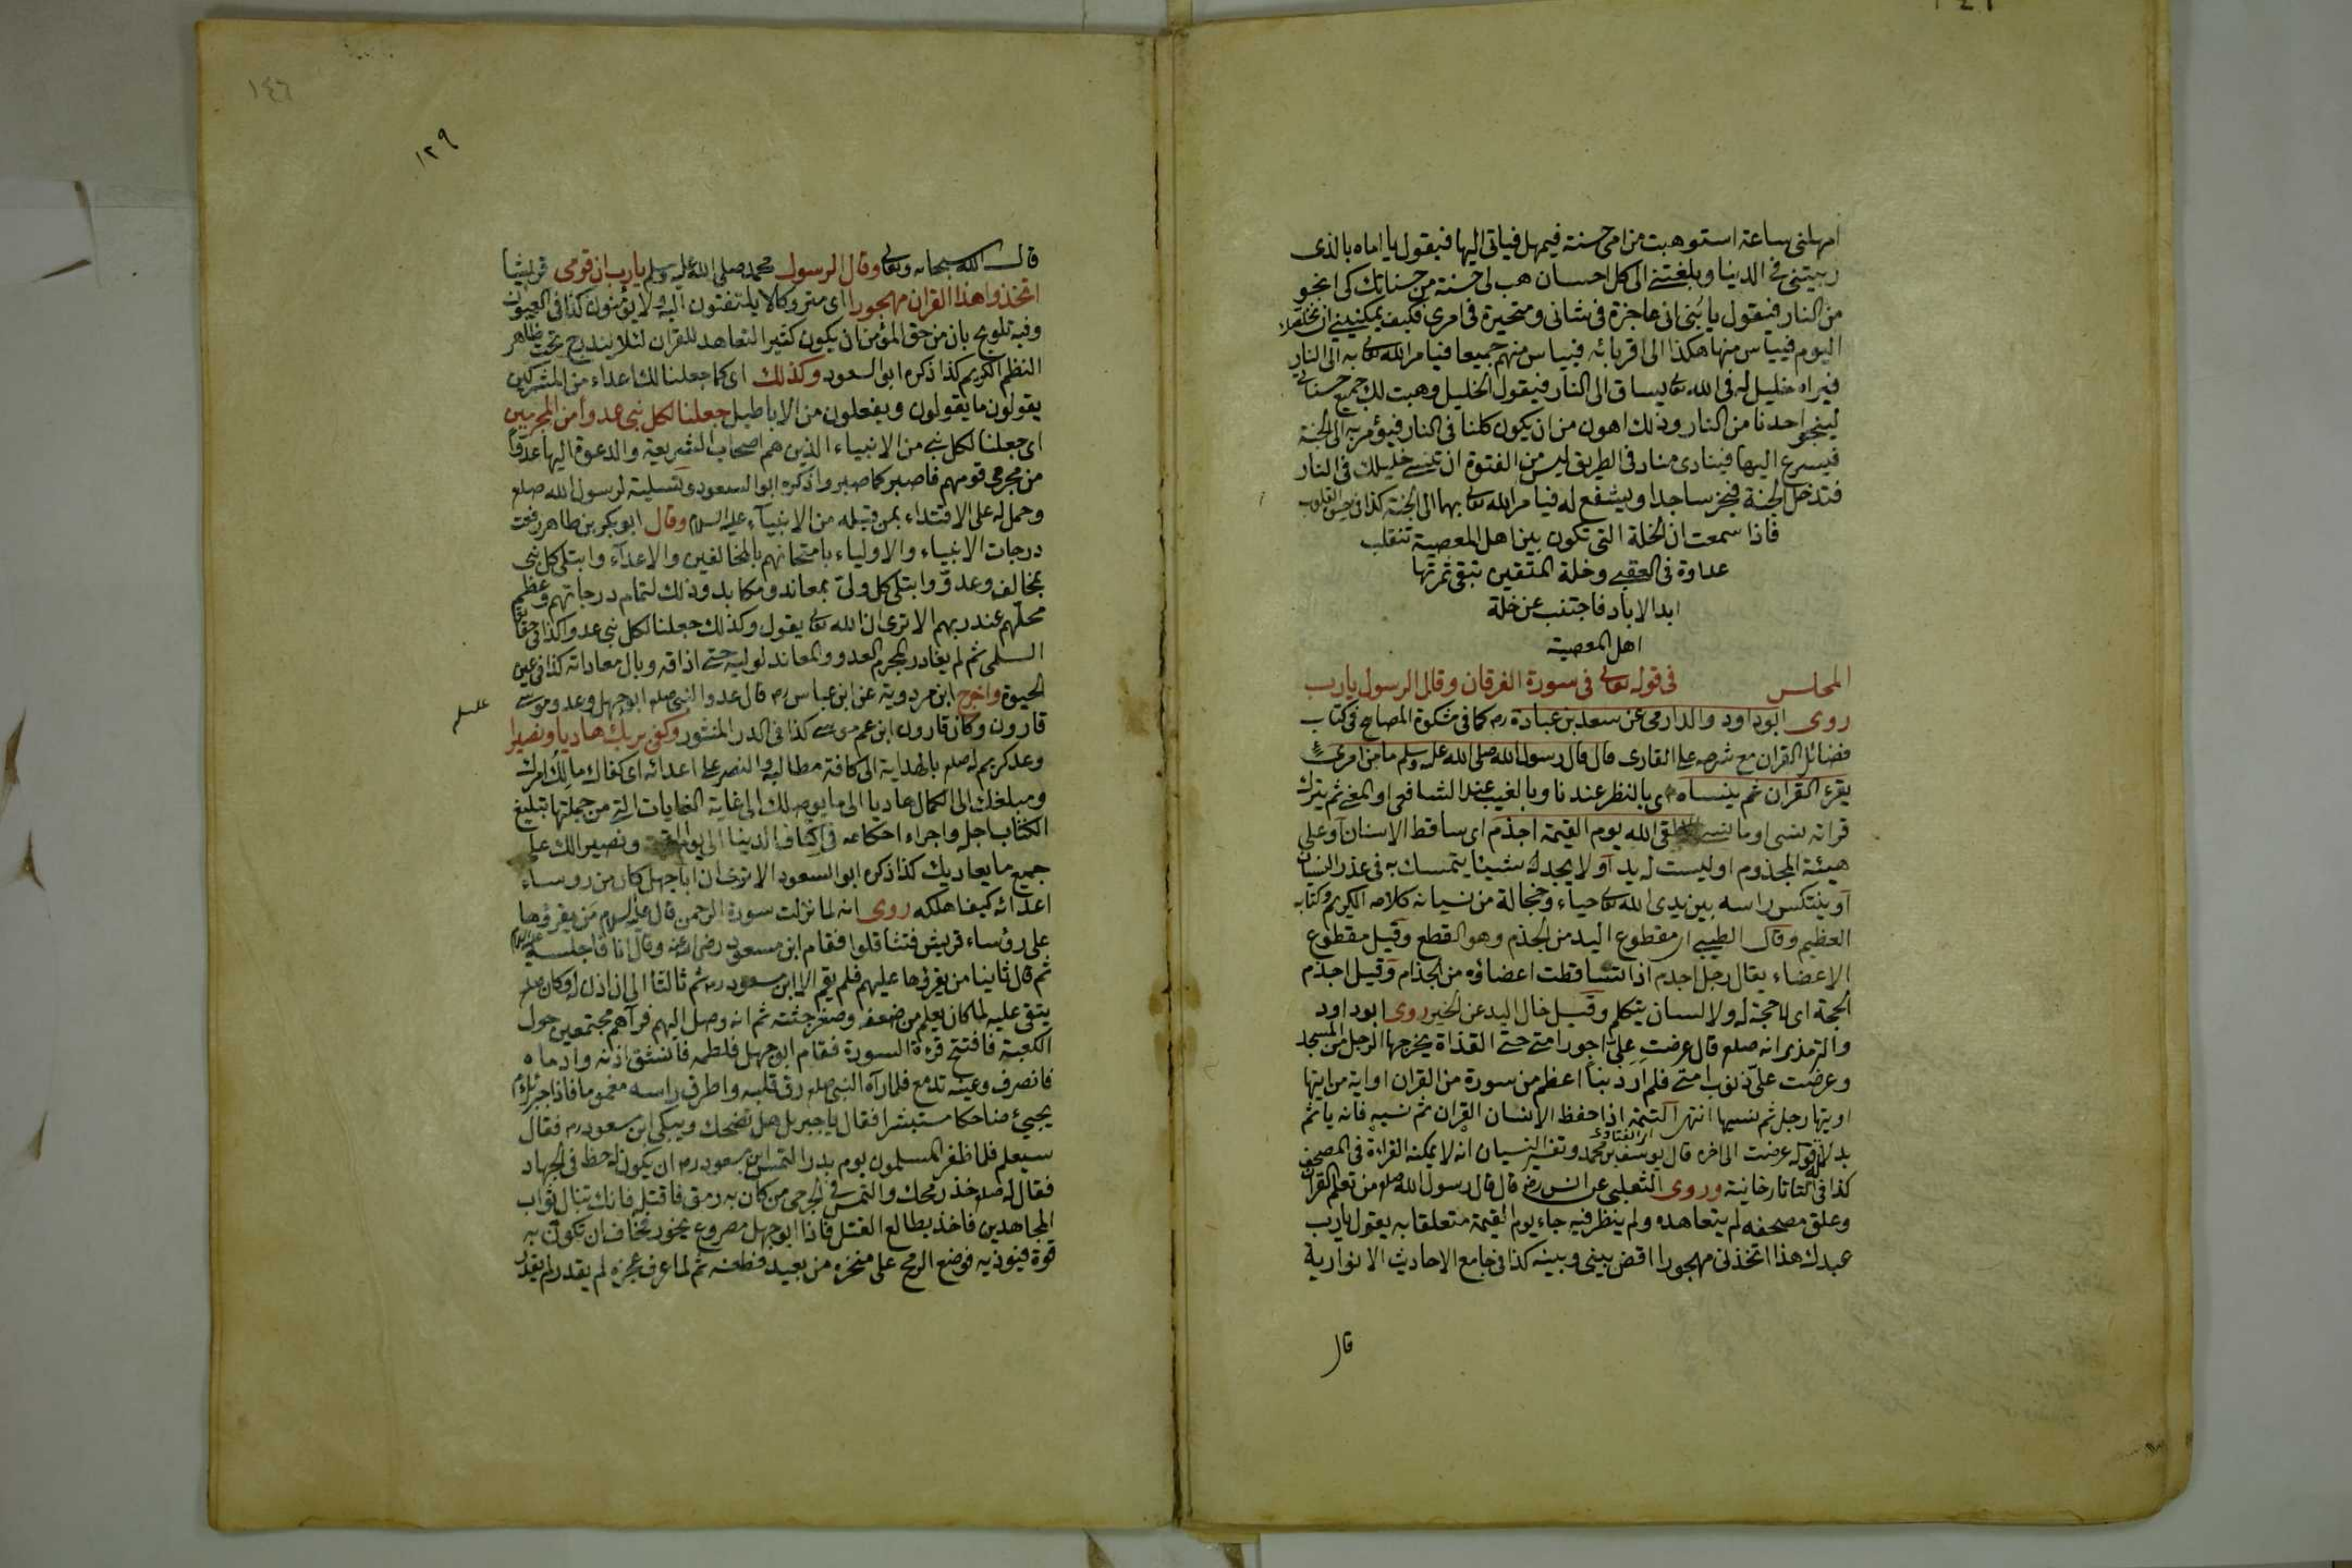 امهلنى ساعة استوهبت من امى حسنة فيمهل فياتى اليها فيقول يا اماه بالذى
ربيتنى فى الدنيا وبلغتنى الى كل احسان هب لى حسنة من حسناتك كى انجو
من النار فيقول يا بنى انى عاجزة فى شانى ومتحيرة فى امرى فكيف يمكننى ان
اليوم فييأس منها هكذا الى اقربائه فييأس منهم جميعا فيامر الله تعالى به الى النار
فيراه خليل له فى الله تعالى يساق الى النار فيقول الخليل وهبت لك جميع حسناتى
لينجو احدنا من النار وذلك اهون من ان يكون كلنا فى النار فيؤمر به الى الجنة
فيسرع اليها فينادى مناد فى الطريق ليس من الفتوة ان تنسى خليلك فى النار
فتدخل الجنة فيخر ساجدا ويشفع له فيامر الله تعالى بهما الى الجنة كذا فى القلوب
فاذا سمعت ان الخلة التى تكون بين اهل المعصية تنقلب
عداوة فى العقبى وخلة المتقين تبقى ثمرتها
ابد الاباد فاجتنب عن خلة
اهل المعصية
المجلس فى قوله تعالى فى سورة الفرقان وقال الرسول يا رب
روى ابو داود والدارمى عن سعد بن عبادة رض كما فى مشكوة المصابيح فى كتاب
فضائل القران مع شرحه على القارى قال قال رسول الله صلى الله عليه وسلم ما من امرئ
يقرء القران ثم ينساه اى بالنظر عندنا وبالغيب عند الشافعى او المعنى ثم يترك
قراته نسى او ما نسى لقى الله يوم القيمة اجذم اى ساقط الاسنان او على
هيئة المجذوم او ليست له يد او لا يجد له شيئا يتمسك به فى عذر النسيان
او ينتكس راسه بين يدى الله تعالى حياء وخجالة من نسيانه كلامه الكريم وكتابه
العظيم وقال الطيبى اى مقطوع اليد من الجذم وهو القطع وقيل مقطوع
الاعضاء يقال رجل اجذم اذا تساقطت اعضاؤه من الجذام وقيل اجذم
الحجة اى لا حجة له ولا لسان يتكلم وقيل خال اليد عن الخير روى ابو داود
والترمذى انه صلعم قال عرضت على اجور امتى حتى القذاة يخرجها الرجل من المسجد
وعرضت على ذنوب امتى فلم ار ذنبا اعظم من سورة من القران او اية من ايتها
اوتيها رجل ثم نسيها انتهى التتمة اذا حفظ الانسان القران ثم نسيه فانه ياثم
اى الفتاوى
بدلالة قوله عرضت الى اخره قال يوسف بن محمد وتفسير النسيان انه لا يمكنه القراءة فى المصحف
كذا فى التاتارخانية وروى الثعلبى عن انس رض قال قال رسول الله صلعم من تعلم القران
وعلق مصحفه لم يتعاهده ولم ينظر فيه جاء يوم القيمة متعلقا به يقول يا رب
عبدك هذا اتخذنى مهجورا اقض بينى وبينه كذا فى جامع الاحاديث الانوارية
قال
١٤٦
١٢٩
قال الله سبحانه وتعالى وقال الرسول محمد صلى الله عليه وسلم يا رب ان قومى قريشا
اتخذوا هذا القران مهجورا اى متروكا لا يلتفتون اليه ولا يؤمنون كذا فى العيون
وفيه تلويح بان من حق المؤمن ان يكون كثير التعاهد للقران لئلا يندرج تحت ظاهر
النظم الكريم كذا ذكره ابو السعود وكذلك اى كما جعلنا لك اعداء من المشركين
يقولون ما يقولون ويفعلون من الاباطيل جعلنا لكل نبى عدوا من المجرمين
اى جعلنا لكل نبى من الانبياء الذين هم اصحاب الشريعة والدعوة اليها عدوا
من مجرمى قومهم فاصبر كما صبروا ذكره ابو السعود وتسلية لرسول الله صلعم
وحمل له على الاقتداء بمن قبله من الانبياء عليه السلام وقال ابو بكر بن طاهر رفعت
درجات الانبياء والاولياء بامتحانهم بالمخالفين والاعداء وابتلى كل نبى
بمخالف وعدو وابتلى كل ولى بمعاند ومكابد وذلك لتمام درجاتهم وعظم
محلهم عند ربهم الا ترى ان الله تعالى يقول وكذلك جعلنا لكل نبى عدوا كذا فى حقائق
السلمى ثم لم يغادر المجرم العدو والمعاند لوليه حتى اذاقه وبال معاداته كذا فى عين
الحيوة واخرج ابن مردوية عن ابن عباس رض قال عدو النبى صلعم ابو جهل وعدو موسى
قارون وكان قارون ابن عم موسى كذا فى الدر المنثور وكفى بربك هاديا ونصيرا
وعد كريم له صلعم بالهداية الى كافة مطالبه والنصر على اعدائه اى كفاك مالك امرك
ومبلغك الى الكمال هاديا الى ما يوصلك الى غاية الغايات التى من جملتها تبليغ
الكتاب اجله واجراء احكامه فى اكناف الدنيا الى يوم القيمة ونصيرا لك على
جميع ما يعاديك كذا ذكره ابو السعود الا ترى ان ابا جهل كان من روساء
اعدائه كيف اهلكه روى انه لما نزلت سورة الرحمن قال عليه السلام من يقرؤها
على رؤساء قريش فتثاقلوا فقام ابن مسعود رضى الله عنه وقال انا فاجلسه عليه السلام
ثم قال ثانيا من يقرؤها عليهم فلم يقم الا ابن مسعود رض ثم ثالثا الى ان اذن له وكان صلعم
يتقى عليه لما كان يعلم من ضعفه وصغر جثته ثم انه وصل اليهم فرآهم مجتمعين حول
الكعبة فافتتح قرءة السورة فقام ابو جهل فلطمه فانشق اذنه وادماه
فانصرف وعينه تدمع فلما رآه النبى صلعم رق قلبه واطرق راسه مغموما فاذا جبرئيل
يجيئ ضاحكا مستبشرا فقال يا جبريل هل تضحك ويبكى ابن مسعود رض فقال
سيعلم فلما ظفر المسلمون يوم بدر التمس ابن مسعود رض ان يكون له حظ فى الجهاد
فقال له صلعم خذ رمحك والتمس فى الجرحى من كان به رمق فاقتله فانك تنال ثواب
المجاهدين فاخذ يطالع القتلى فاذا ابو جهل مصروع يخور فخاف ان تكون به
قوة فيؤذيه فوضع الرمح على منخره من بعيد فطعنه ثم لما عرف عجزه لم يقدر